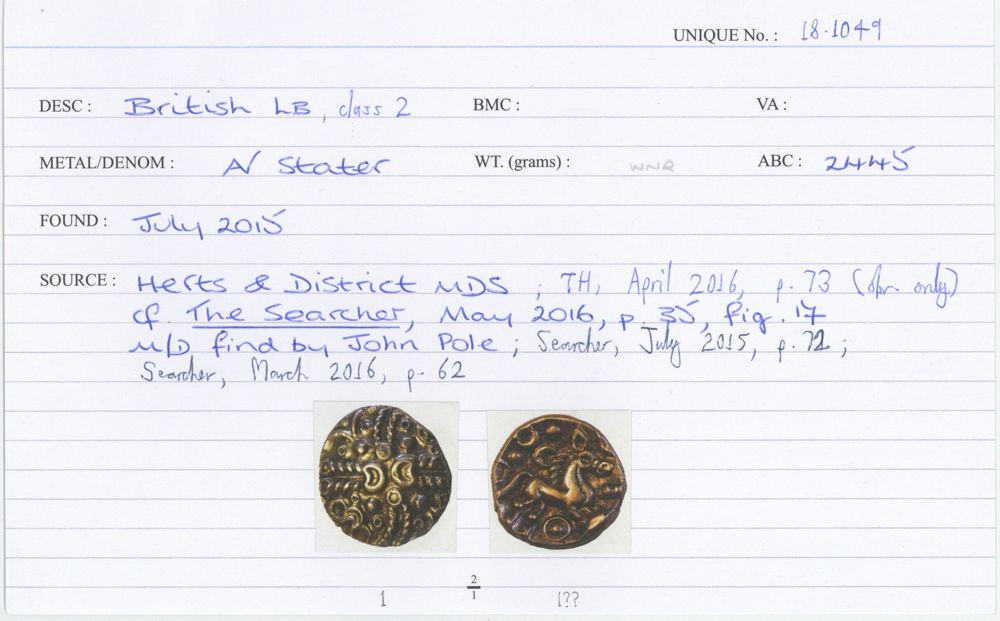 UNIQUE No. : 18·1049
DESC : British LB, class 2 BMC : VA :
METAL/DENOM : A/ Stater WT. (grams) : WNR ABC : 2445
FOUND : July 2015
SOURCE : Herts & District MDS ; TH, April 2016, p. 73 (obv. only)
cf. The Searcher, May 2016, p. 35, fig. 17
M/D find by John Pole ; Searcher, July 2015, p. 72 ;
Searcher, March 2016, p. 62
2/1
1 1??